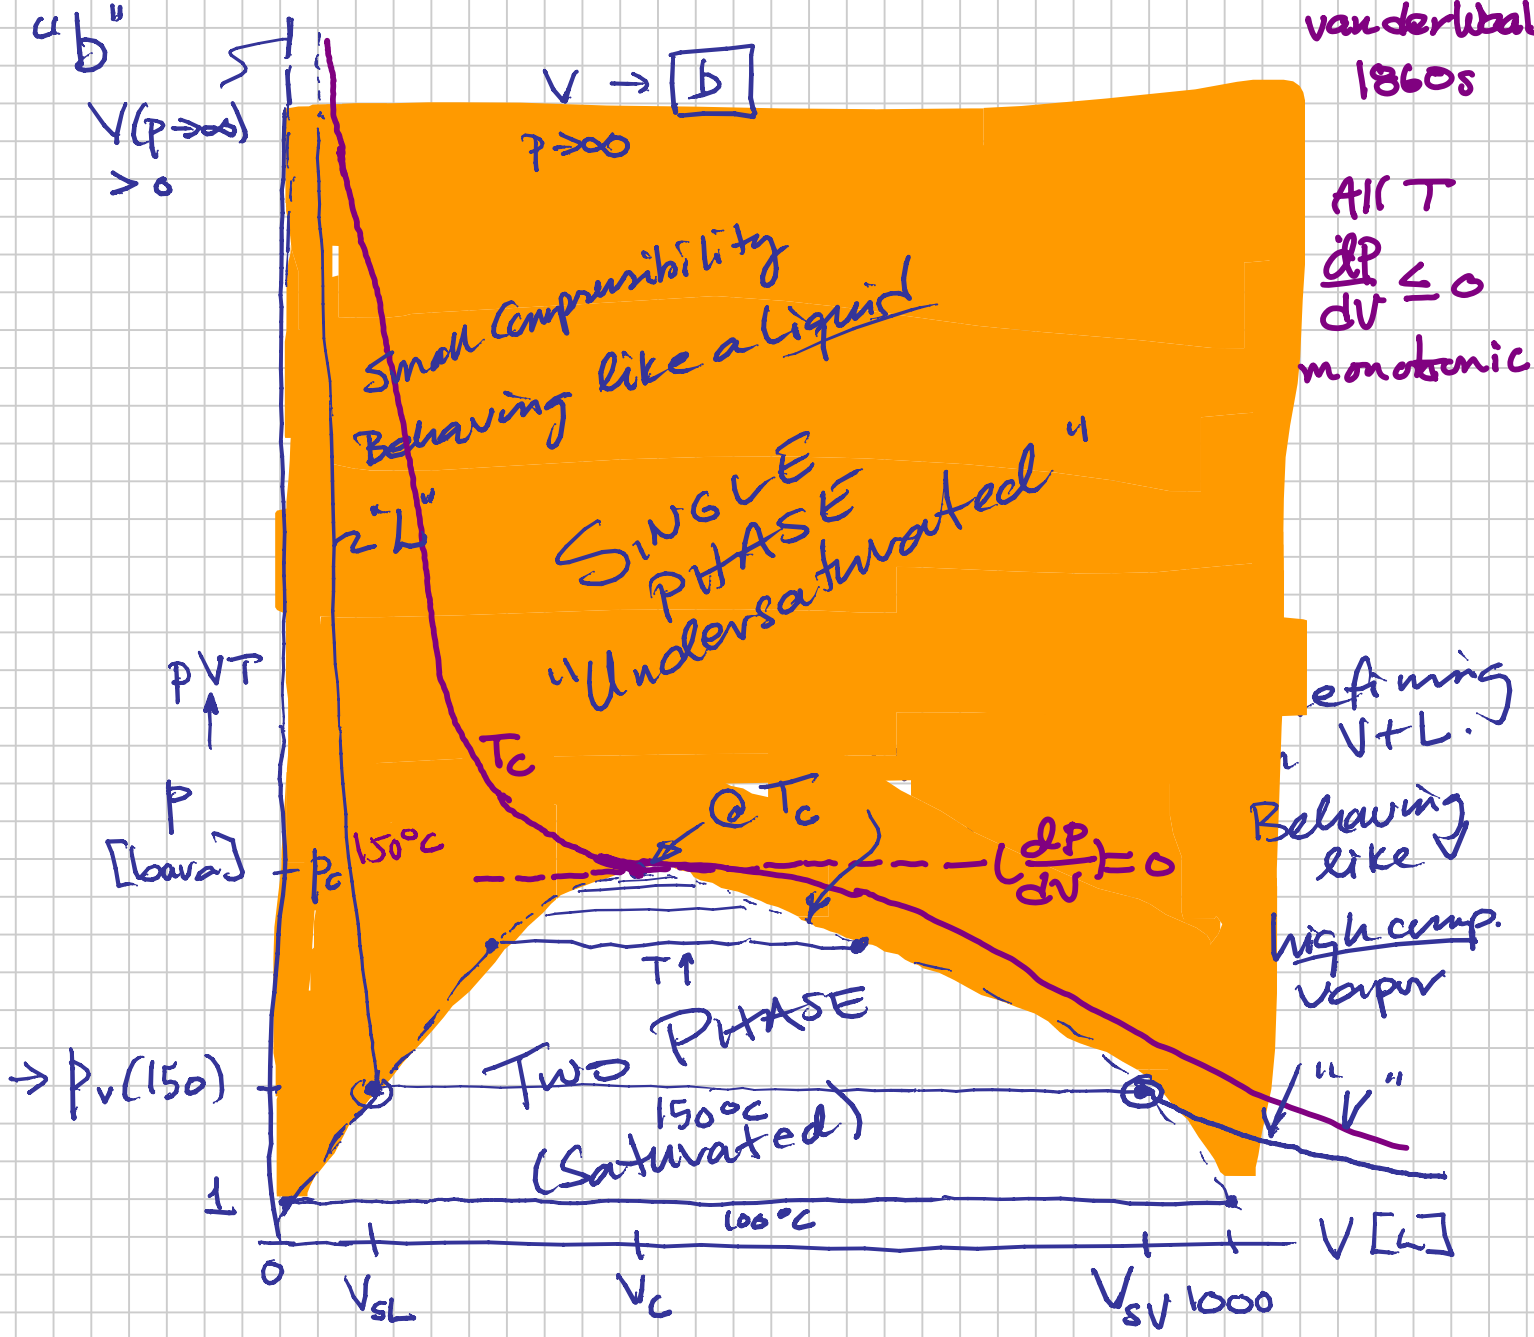 "b"
V(p→∞)
> 0
V → b
p→∞
van der Waal
1860s
All T
dP/dV ≤ 0
monotonic
Small Compressibility
Behaving like a Liquid
~"L"
SINGLE
PHASE
"Undersaturated"
pVT
↑
P
[bara]
Pc
150°C
Tc
@ Tc
(dP/dV) = 0
efining
V+L.
Behaving
like
high comp.
vapor
T↑
TWO PHASE
150°C
(Saturated)
→ Pv(150)
"V"
1
100°C
V [L]
0
VSL
Vc
VSV
1000